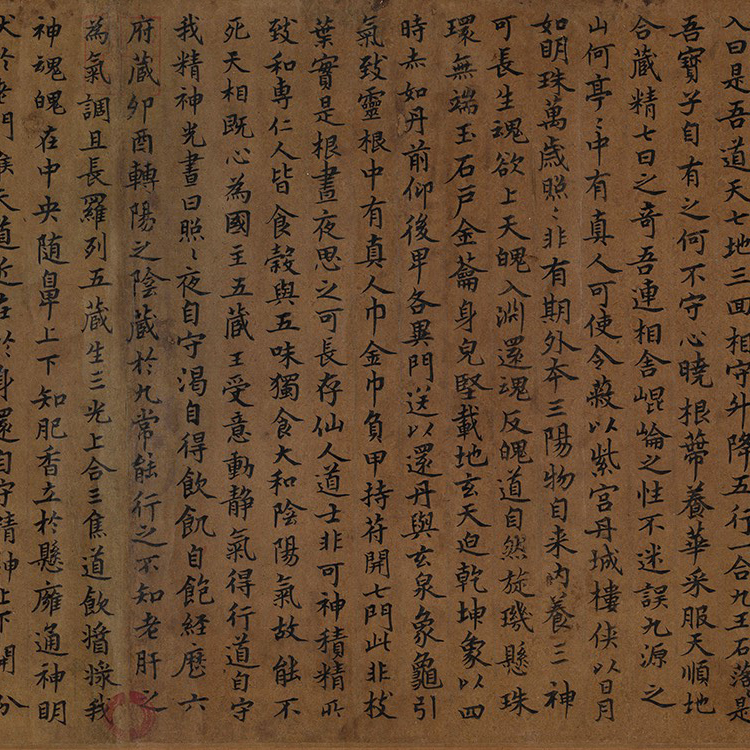 入曰是吾道天七地三回相守升降五行一合九玉石落是
吾寶子自有之何不守心曉根蔕養華采服天順地
合藏精七日之奇吾連相舍崐崙之性不迷誤九源之
山何亭〻中有真人可使令蔽以紫宮丹城樓侠以日月
如明珠萬歳照〻非有期外夲三陽物自来内養三神
可長生魂欲上天魄入淵還魂反魄道自然旋璣懸珠
環無端玉石戶金籥身皃堅載地玄天迫乾坤象以四
時赤如丹前仰後卑各異門送以還丹與玄泉象龜引
氣致靈根中有真人巾金巾負甲持符開七門此非枝
葉實是根晝夜思之可長存仙人道士非可神積精所
致和專仁人皆食穀與五味獨食太和陰陽氣故能不
死天相既心為國主五藏王受意動静氣得行道自守
我精神光晝日照〻夜自守渴自得飲飢自飽經歷六
府藏夘酉轉陽之陰藏於九常能行之不知老肝之
為氣調且長羅列五藏生三光上合三焦道飲醬𣺌我
神魂魄在中央随鼻上下知肥香立於懸𪫟通神明
伏於老門候天道近在於身還自守精神上下開分